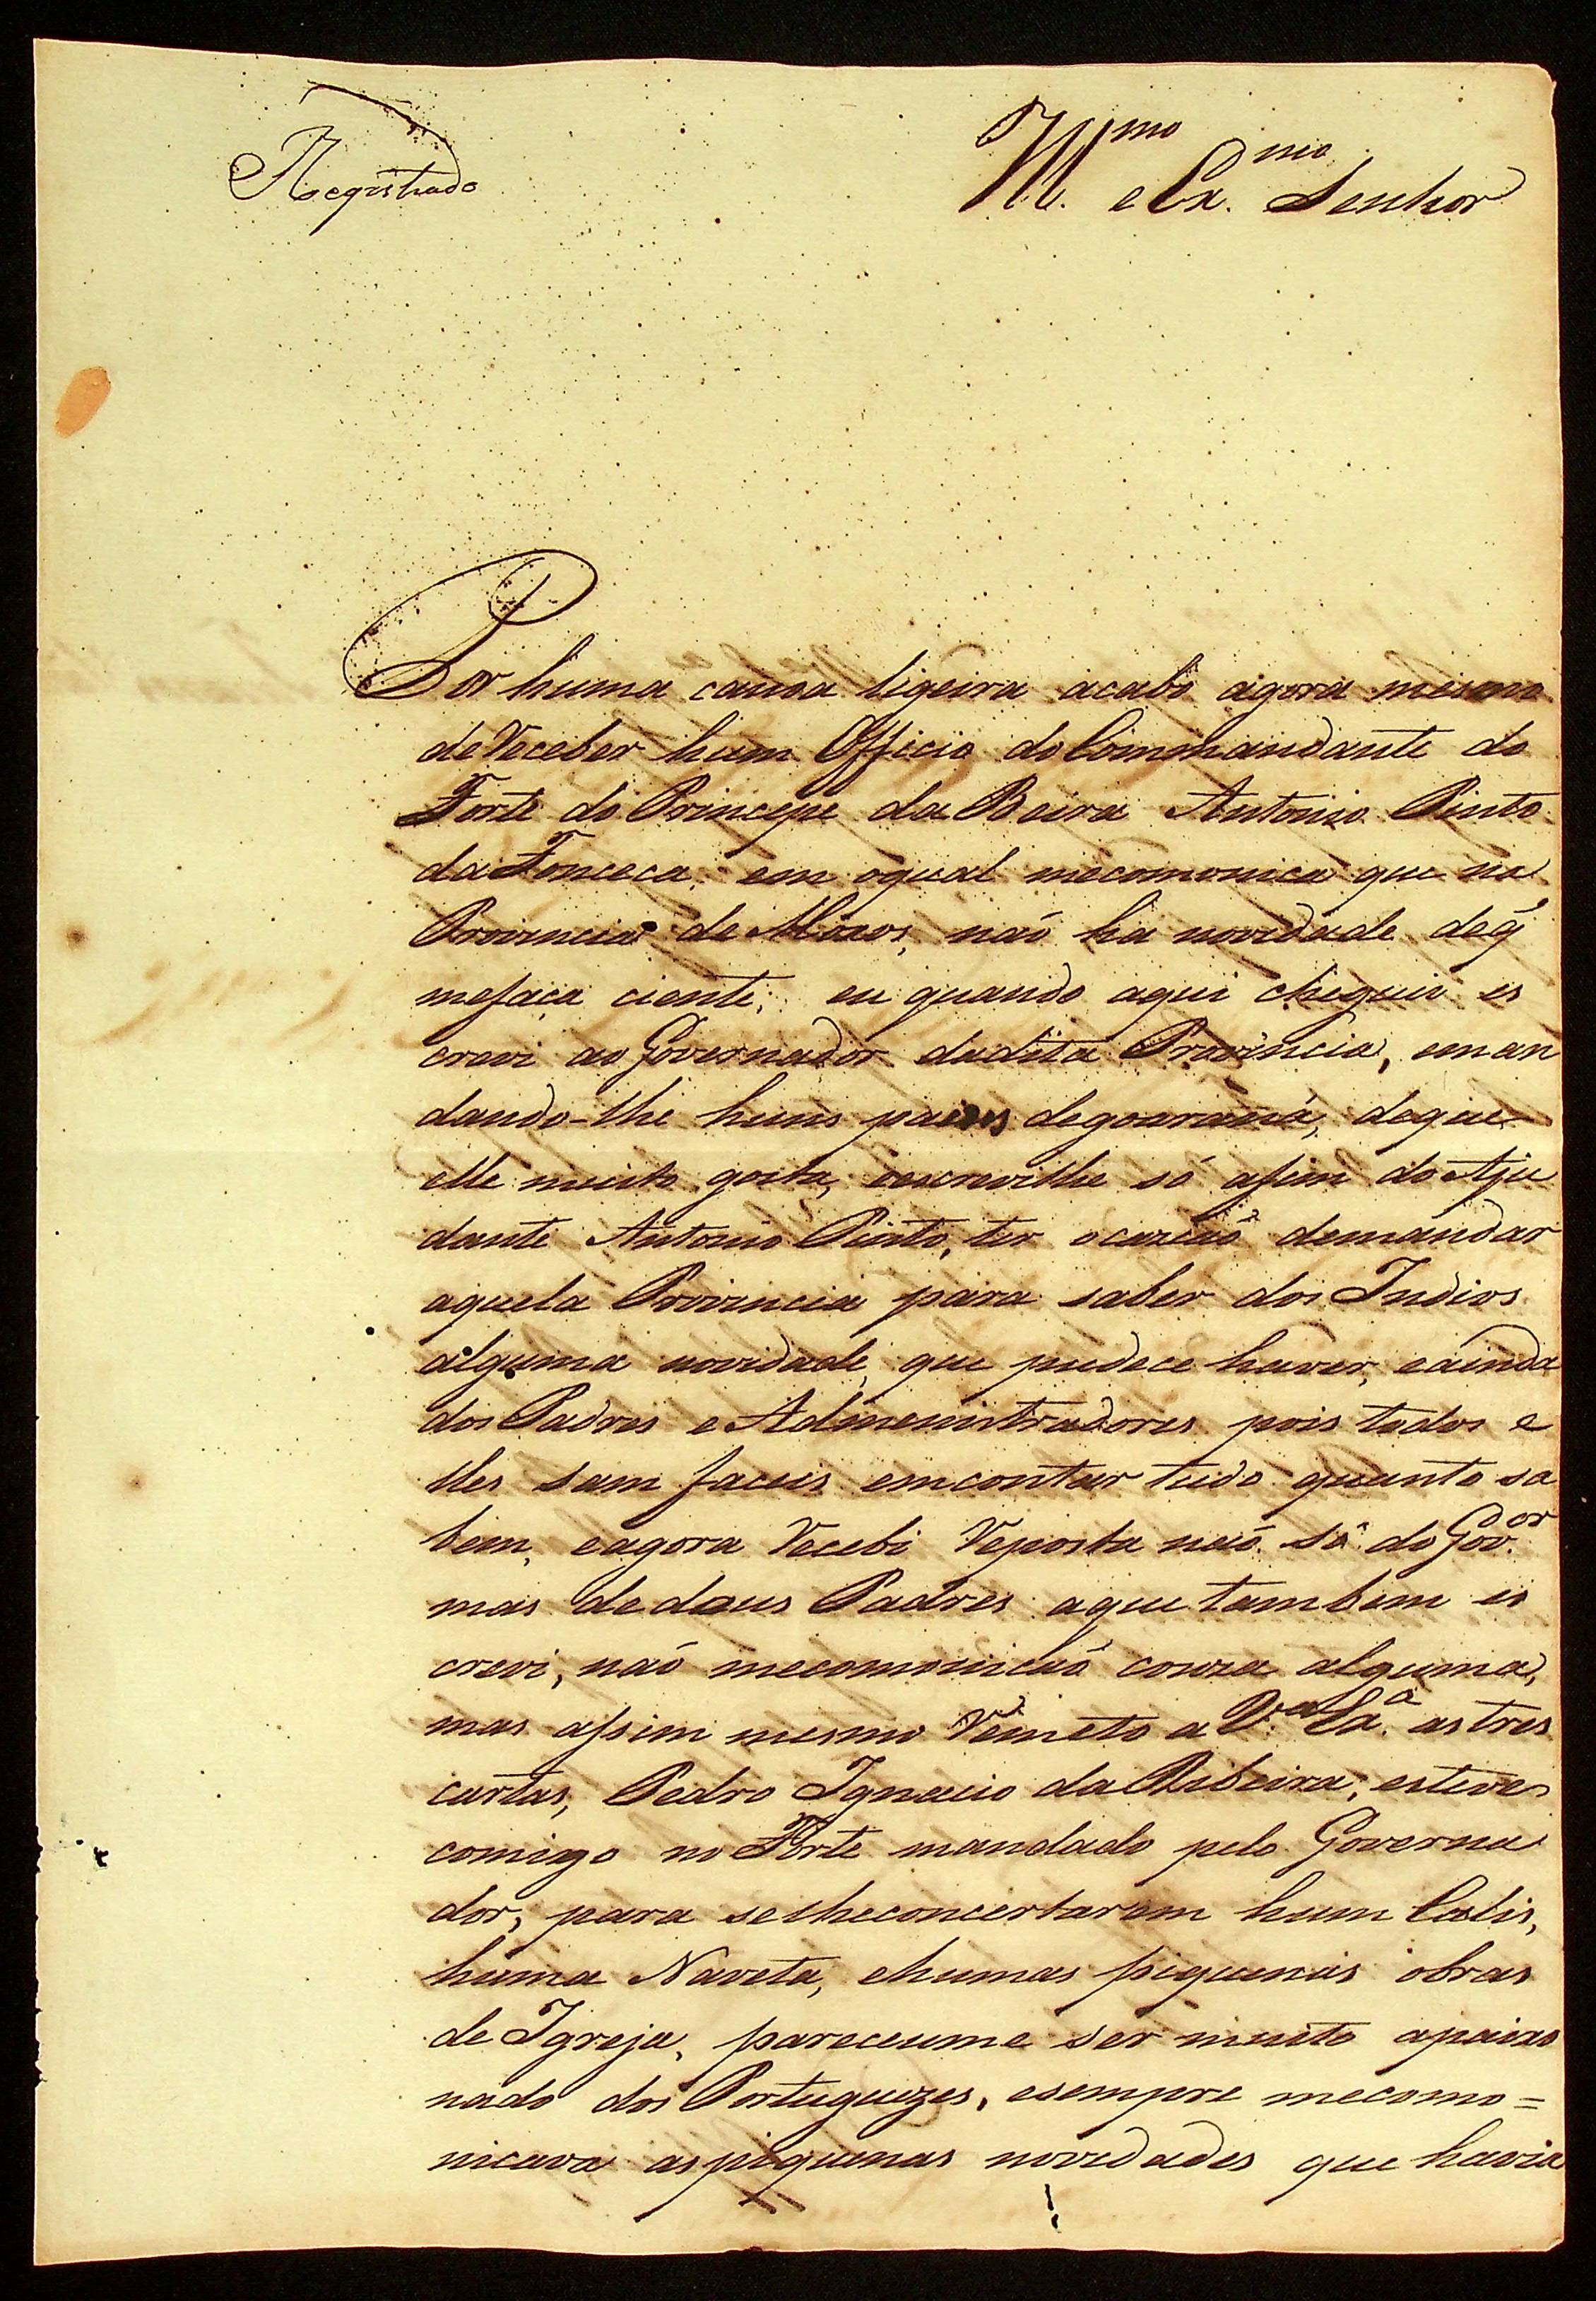 Registrado
Ill.mo e Ex.mo Senhor
Por huma canoa ligeira acabo agora mesmo
de Receber hum Officio do Commandante do
Forte do Principe da Beira Antonio Pinto
da Fonceca, em oqual mecomonica que na
Provincia de Moxos, naõ ha novidade deq̃
mefaça ciente; eu quando aqui cheguei es
crevi ao Governador dadita Provincia, eman
dando-lhe huns paens degoaraná, deque
elle muito gosta, eescrevilhe só afim do Aju
dante Antonio Pinto, ter ocaziaõ demandar
aquela Provincia para saber dos Indios
alguma novidade, que pudece haver, eainda
dos Padres e Admenistradores pois todos e
lles sam faceis emcontar tudo quanto sa
bem, eagora Recebi Reposta naõ só do Gov.or
mas dedous Padres aque tambem es
crevi, naõ mecomonicaõ couza alguma,
mas assim mesmo Remeto a V.a Ex.a as tres
cartas, Pedro Ignacio da Ribeira, esteve
comigo no Forte mandado pelo Governa
dor, para selheconcertarem hum Calis,
huma Naveta, ehumas piquenas obras
de Igreja, pareceume ser muito apaixo
nado dos Portuguezes, esempre mecomo=
nicava aspiquenas novidades que havia